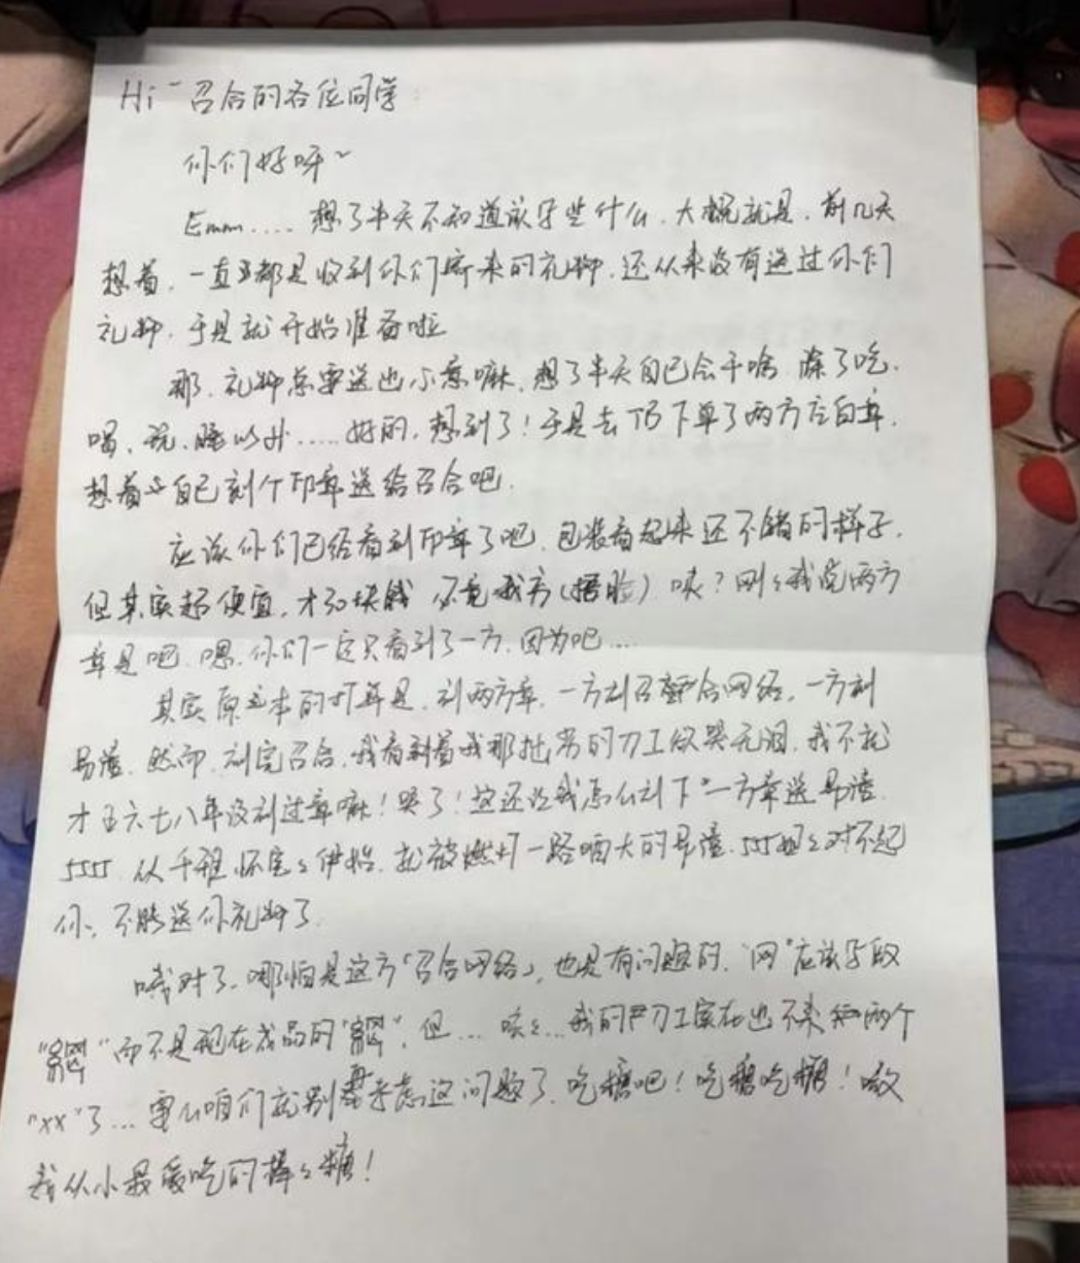 Hi~召合的各位同学
你们好呀~
Emm.... 想了半天不知道该写些什么,大概就是,前几天
想着,一直都是收到你们寄来的礼物,还从来没有送过你们
礼物,于是就开始准备啦
那,礼物总要送出心意嘛,想了半天自己会干啥,除了吃、
喝、玩、睡以外.....好的,想到了!于是去TB下单了两方石白章,
想着自己刻个印章送给召合吧.
应该你们已经看到印章了吧,包装看起来还不错的样子,
但其实超便宜,才30块钱 毕竟我穷(捂脸) 咦?刚刚我说两方
章是吧,嗯,你们一定只看到了一方,因为吧....
其实原本的打算是,刻两方章,一方刻召合网络,一方刻
易潼,然而,刻完召合,我看着我那拙劣的刀工欲哭无泪,我不就
才五六七八年没刻过章嘛!哭了!这还让我怎么刻下一方章送易潼
5555 从千 怀 伊始,就被燃灯一路 大的易潼,555姐姐对不起
你,不能送你礼物了
哦对了,哪怕是这方「召合网络」,也是有问题的,"网"应该写成
" "而不是现在成品的" ",但...咳咳...我的刀工实在也不 两个
"××"了...要么咱们就别考虑这问题了,吃糖吧!吃糖吃糖!嗷
我从小最爱吃的棒棒糖!